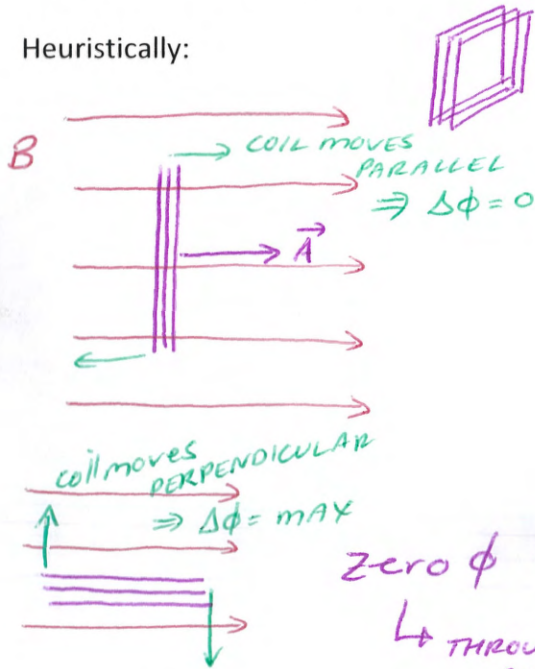 Heuristically:
B
COIL MOVES
PARALLEL
⇒ Δϕ = 0
A
coil moves
PERPENDICULAR
⇒ Δϕ = MAX
Zero ϕ
↳